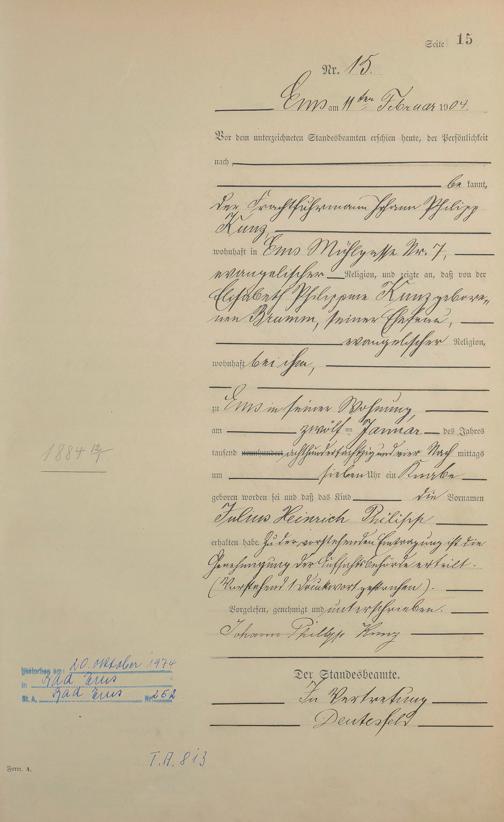 Seite 15
Nr. 15.
Ems am 11ten Februar 1904.
Vor dem unterzeichneten Standesbeamten erschien heute, der Persönlichkeit
nach
be kannt,
der Frachtfuhrmann Johann Philipp
Kunz,
wohnhaft in Ems Mühlgasse Nr. 7,
evangelischer Religion, und zeigte an, daß von der
Elisabeth Philippine Kunz gebore-
nen Bramm, seiner Ehefrau,
evangelischer Religion,
wohnhaft bei ihm,
zu Ems in seiner Wohnung,
am zwölften Januar des Jahres
tausend neunhundert achthundertachtzig und vier Nach mittags
um sieben Uhr ein Knabe
geboren worden sei und daß das Kind die Vornamen
Julius Heinrich Philipp
erhalten habe. Zu der vorstehenden Eintragung ist die
Genehmigung der Aufsichtsbehörde erteilt.
(Vorstehend 1 Druckwort gestrichen).
Vorgelesen, genehmigt und unterschrieben.
Johann Philipp Kunz
Der Standesbeamte.
In Vertretung
1884
Gestorben am: 20. Oktober 1974
in Bad Ems
St. A. Bad Ems Nr. 262
T.A. 813
Form. A.